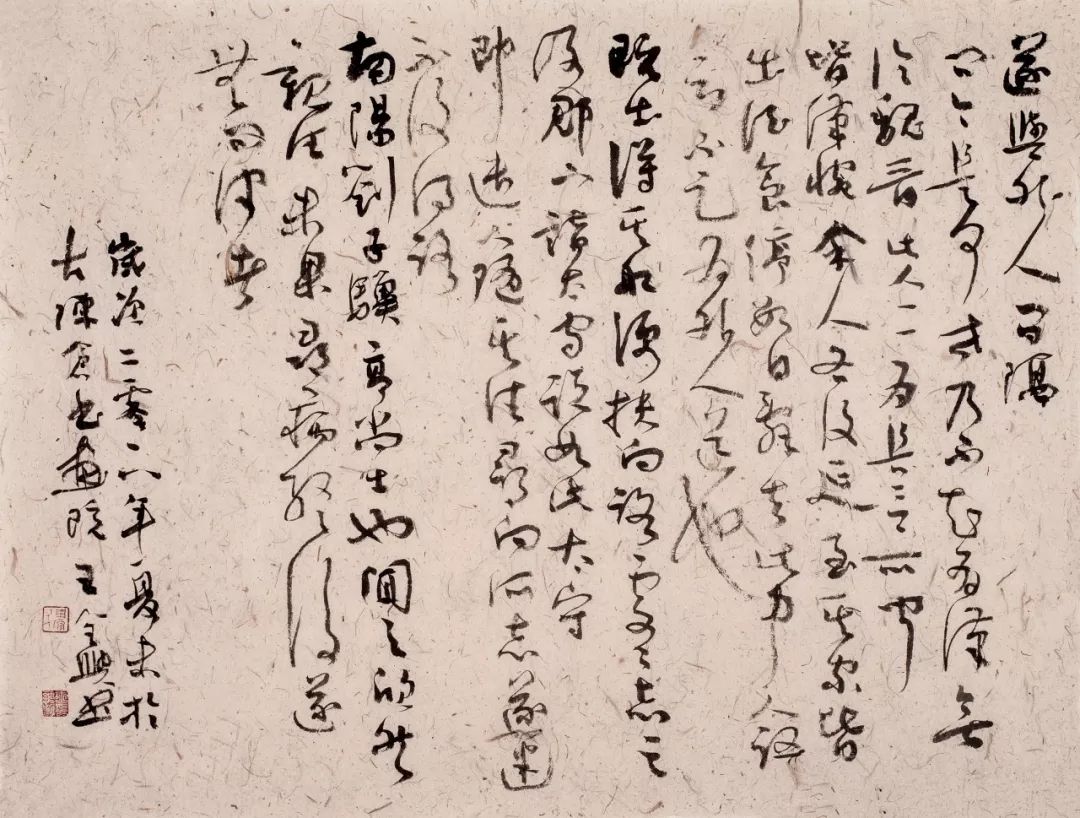 遂與外人间隔
问今是何世乃不知有漢無
论魏晋此人一一为具言所闻
皆嘆惋余人各復延至其家皆
出酒食停数日辞去此中人語
云不足为外人道也
既出得其船便扶向路处处志之
及郡下詣太守説如此太守
即遣人随其往尋向所志遂迷
不復得路
南陽劉子驥高尚士也闻之欣然
規往未果尋病终後遂
無问津者
歲次二零一八年夏末於
古陳倉书畫院王全興书